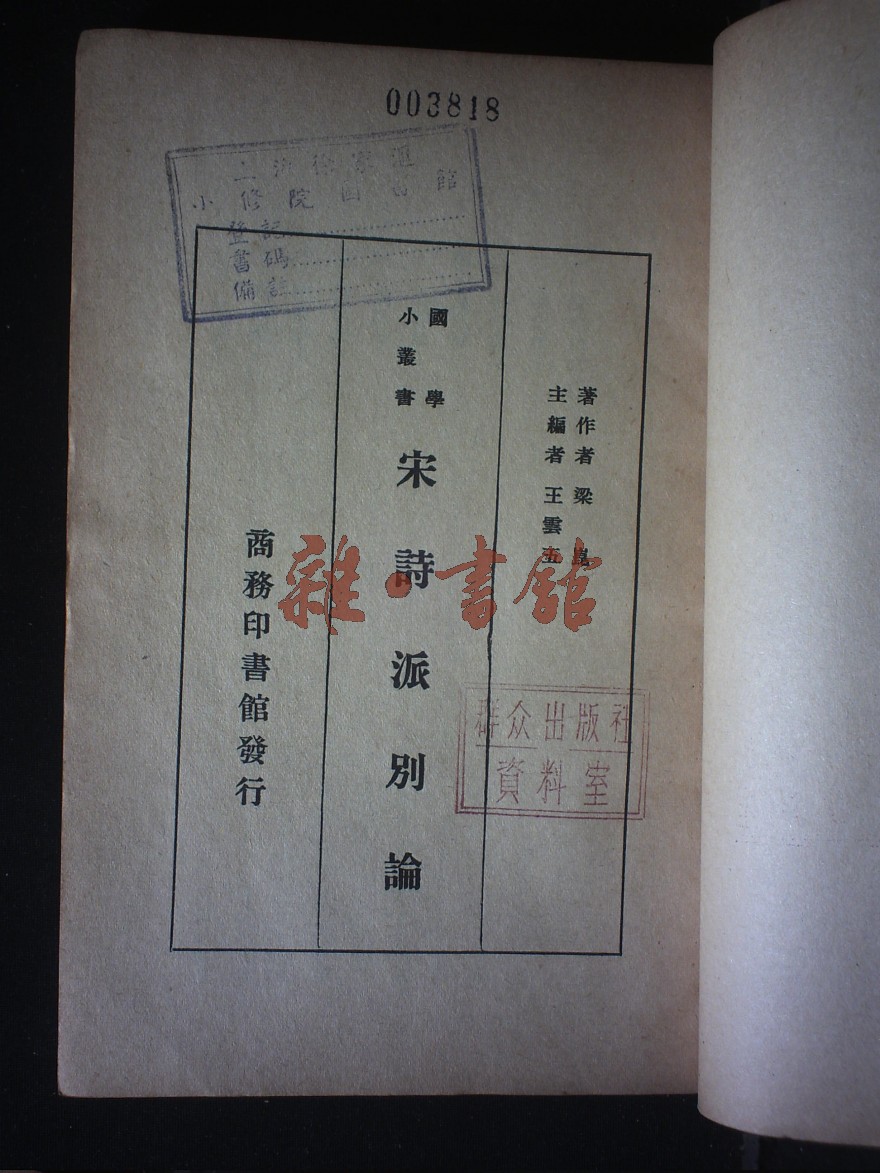 003818
上海徐家滙
小修院圖書館
登記
書碼
備註
著作者 梁崑
主編者 王雲五
國學
小叢書
宋詩派別論
商務印書館發行
雜書館
群众出版社
資料室